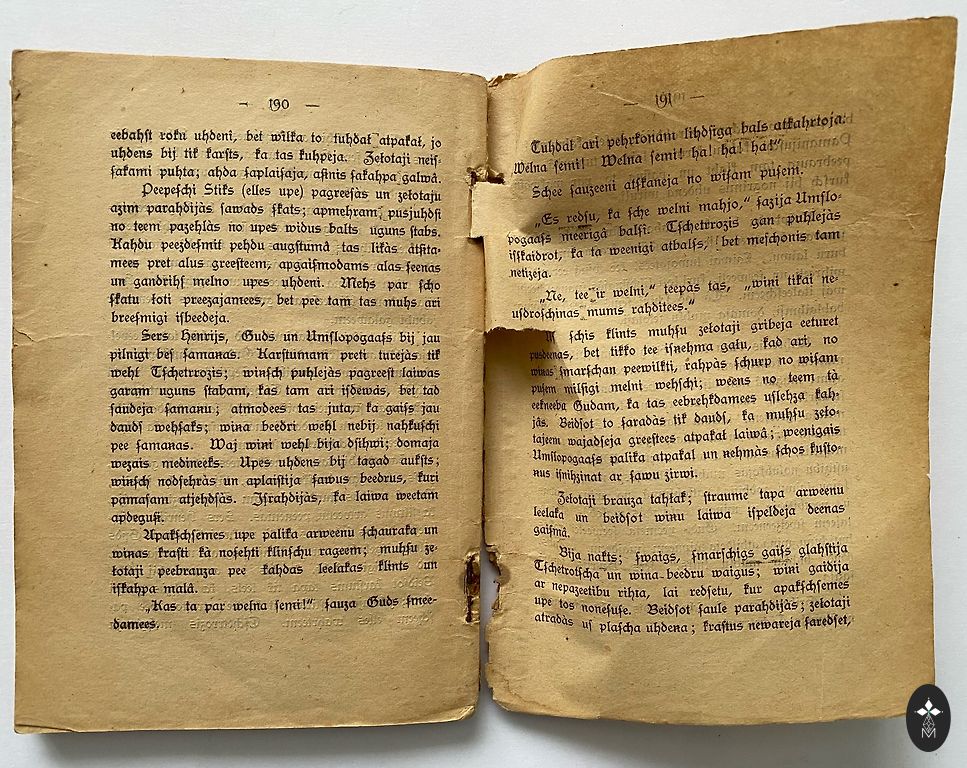 — 190 —
eebahſt roku uhdeni, bet wilka to tuhdaƚ atpakaƚ, jo
uhdens bij tik karſts, ka tas kuhpeja. Zeƚotaji neis-
ſakami puhta; ahda ſaplaiſaja, aſinis ſakahpa galwâ.
Peepeſchi Stiks (elles upe) pagreeſàs un zeƚotaju
azim parahdijàs ſawads ſkats; apmehram pusjuhdſi
no teem pazehlàs no upes widus balts uguns ſtabs.
Kahdu peezdeſmit pehdu augſtumâ tas likàs atſita-
mees pret alus greeſteem, apgaiſmodams alas ſeenas
un gandrihſ melno upes uhdeni. Mehs par ſcho
ſkatu ƚoti preezajamees, bet pee tam tas muhs ari
breeſmigi isbeedeja.
Sers Henrijs, Guds un Umſlopogaaſs bij jau
pilnigi beſ ſamaņas. Karſtumam preti turejàs tik
wehl Tſchetrrozis; wiņſch puhlejàs pagreeſt laiwas
garam uguns ſtabam, kas tam ari iſdewàs, bet tad
ſaudeja ſamaņu; atmodees tas juta, ka gaiſs jau
daudſ wehſaks; wiņa beedri wehl nebij nahkuſchi
pee ſamaņas. Waj wiņi wehl bija dſihwi; domaja
wezais medineeks. Upes uhdens bij tagad auksts;
wiņſch nodſehràs un aplaiſtija ſawus beedrus, kuri
pamaſam atjehdſàs. Iſrahdijàs, ka laiwa weetam
apdeguſi.
Apakſchſemes upe palika arweenu ſchauraka un
wiņas kraſti kà noſehti klinſchu rageem; muhſu ze-
ƚotaji peebrauza pee kahdas leelakas klints un
iſkahpa malâ.
„Kas ta par welna ſemi!“ ſauza Guds ſmee-
damees.
— 191 —
Tuhdaƚ ari pehrkonam lihdſiga bals atkahrtoja:
Welna ſemi! Welna ſemi! ha! ha! ha!“
Schee ſauzeeni atſkaneja no wiſam puſem.
„Es redſu, ka ſche welni mahjo,“ ſazija Umſlo-
pogaaſs meerigâ balſî. Tſchetrrozis gan puhlejàs
iſſkaidrot, ka ta weenigi atbalſs, bet meſchonis tam
netizeja.
„Ne, tee ir welni,“ teepàs tas, „wiņi tikai ne-
usdroſchinas mums rahditees.“
Uſ ſchis klints muhſu zeƚotaji gribeja eeturet
pusdeenas, bet tikko tee iſņehma gaƚu, kad ari, no
wiņas ſmarſchan peewilkti, rahpàs ſchurp no wiſam
puſem milſigi melni wehſchi; weens no teem tà
eekneeba Gudam, ka tas eebrehkdamees uſlehza kah-
jàs. Beidſot to ſaradàs tik daudſ, ka muhſu zeƚo-
tajeem wajadſeja greeſtees atpakaƚ laiwâ; weenigais
Umſlopogaaſs palika atpakaƚ un ņehmàs ſchos kuſto-
ņus iſnihzinat ar ſawu zirwi.
Zeƚotaji brauza tahƚak; ſtraume tapa arweenu
leelaka un beidſot wiņu laiwa iſpeldeja deenas
gaiſmâ.
Bija nakts; ſwaigs, ſmarſchigs gaiſs glahſtija
Tſchetrotſcha un wiņa beedru waigus; wiņi gaidija
ar nepazeetibu rihta, lai redſetu, kur apakſchſemes
upe tos noneſuſe. Beidſot ſaule parahdijàs; zeƚotaji
atradàs uſ plaſcha uhdeņa; kraſtus newareja ſaredſet,
M